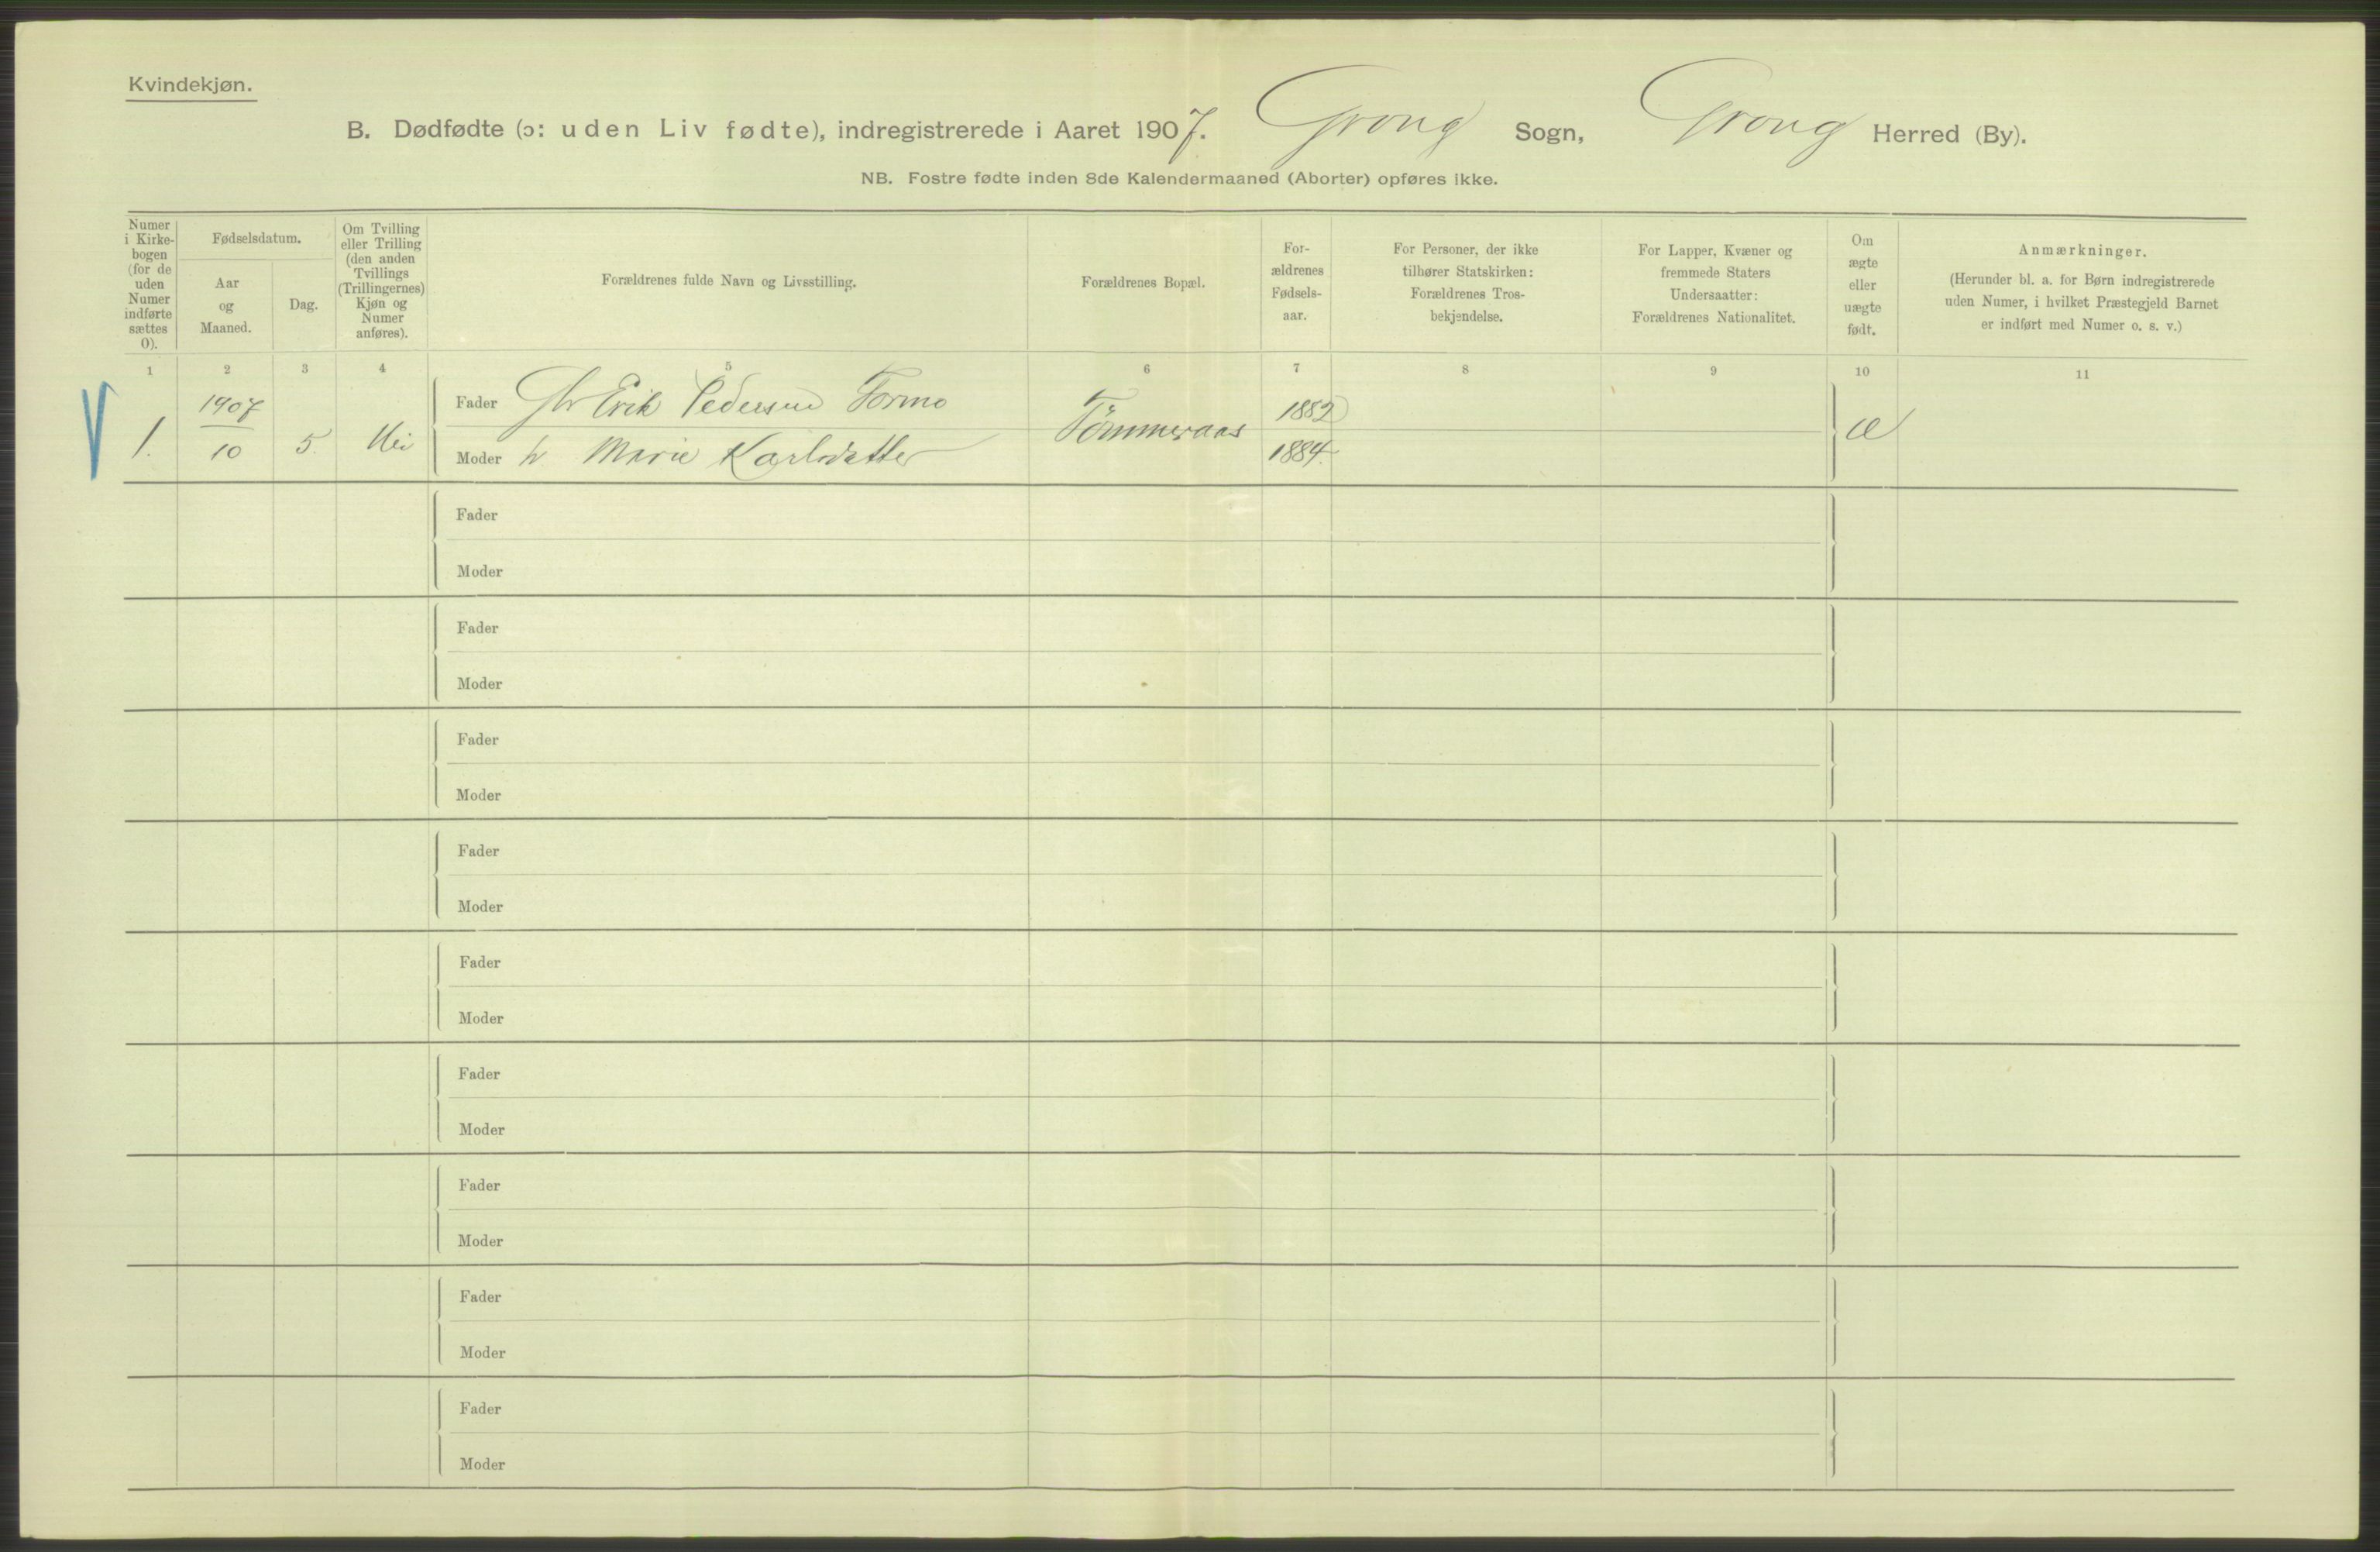 Kvindekjøn.
B. Dødfødte (ɔ: uden Liv fødte), indregistrerede i Aaret 1907. Grong Sogn, Grong Herred (By).
NB. Fostre fødte inden 8de Kalendermaaned (Aborter) opføres ikke.
Numer
i Kirke-
bogen
(for de
uden
Numer
indførte
sættes
0).
Fødselsdatum.
Aar
og
Maaned.
Dag.
Om Tvilling
eller Trilling
(den anden
Tvillings
(Trillingernes)
Kjøn og
Numer
anføres).
Forældrenes fulde Navn og Livsstilling.
Forældrenes Bopæl.
For-
ældrenes
Fødsels-
aar.
For Personer, der ikke
tilhører Statskirken:
Forældrenes Tros-
bekjendelse.
For Lapper, Kvæner og
fremmede Staters
Undersaatter:
Forældrenes Nationalitet.
Om
ægte
eller
uægte
født.
Anmærkninger.
(Herunder bl. a. for Børn indregistrerede
uden Numer, i hvilket Præstegjeld Barnet
er indført med Numer o. s. v.)
1 2 3 4 5 6 7 8 9 10 11
1.
1907
10
5.
Nei
Fader Gbr Erik Pedersen Formo
Moder h Marie Karlsdatter
Tømmeraas
1882
1884.
æ
Fader
Moder
Fader
Moder
Fader
Moder
Fader
Moder
Fader
Moder
Fader
Moder
Fader
Moder
Fader
Moder
Fader
Moder